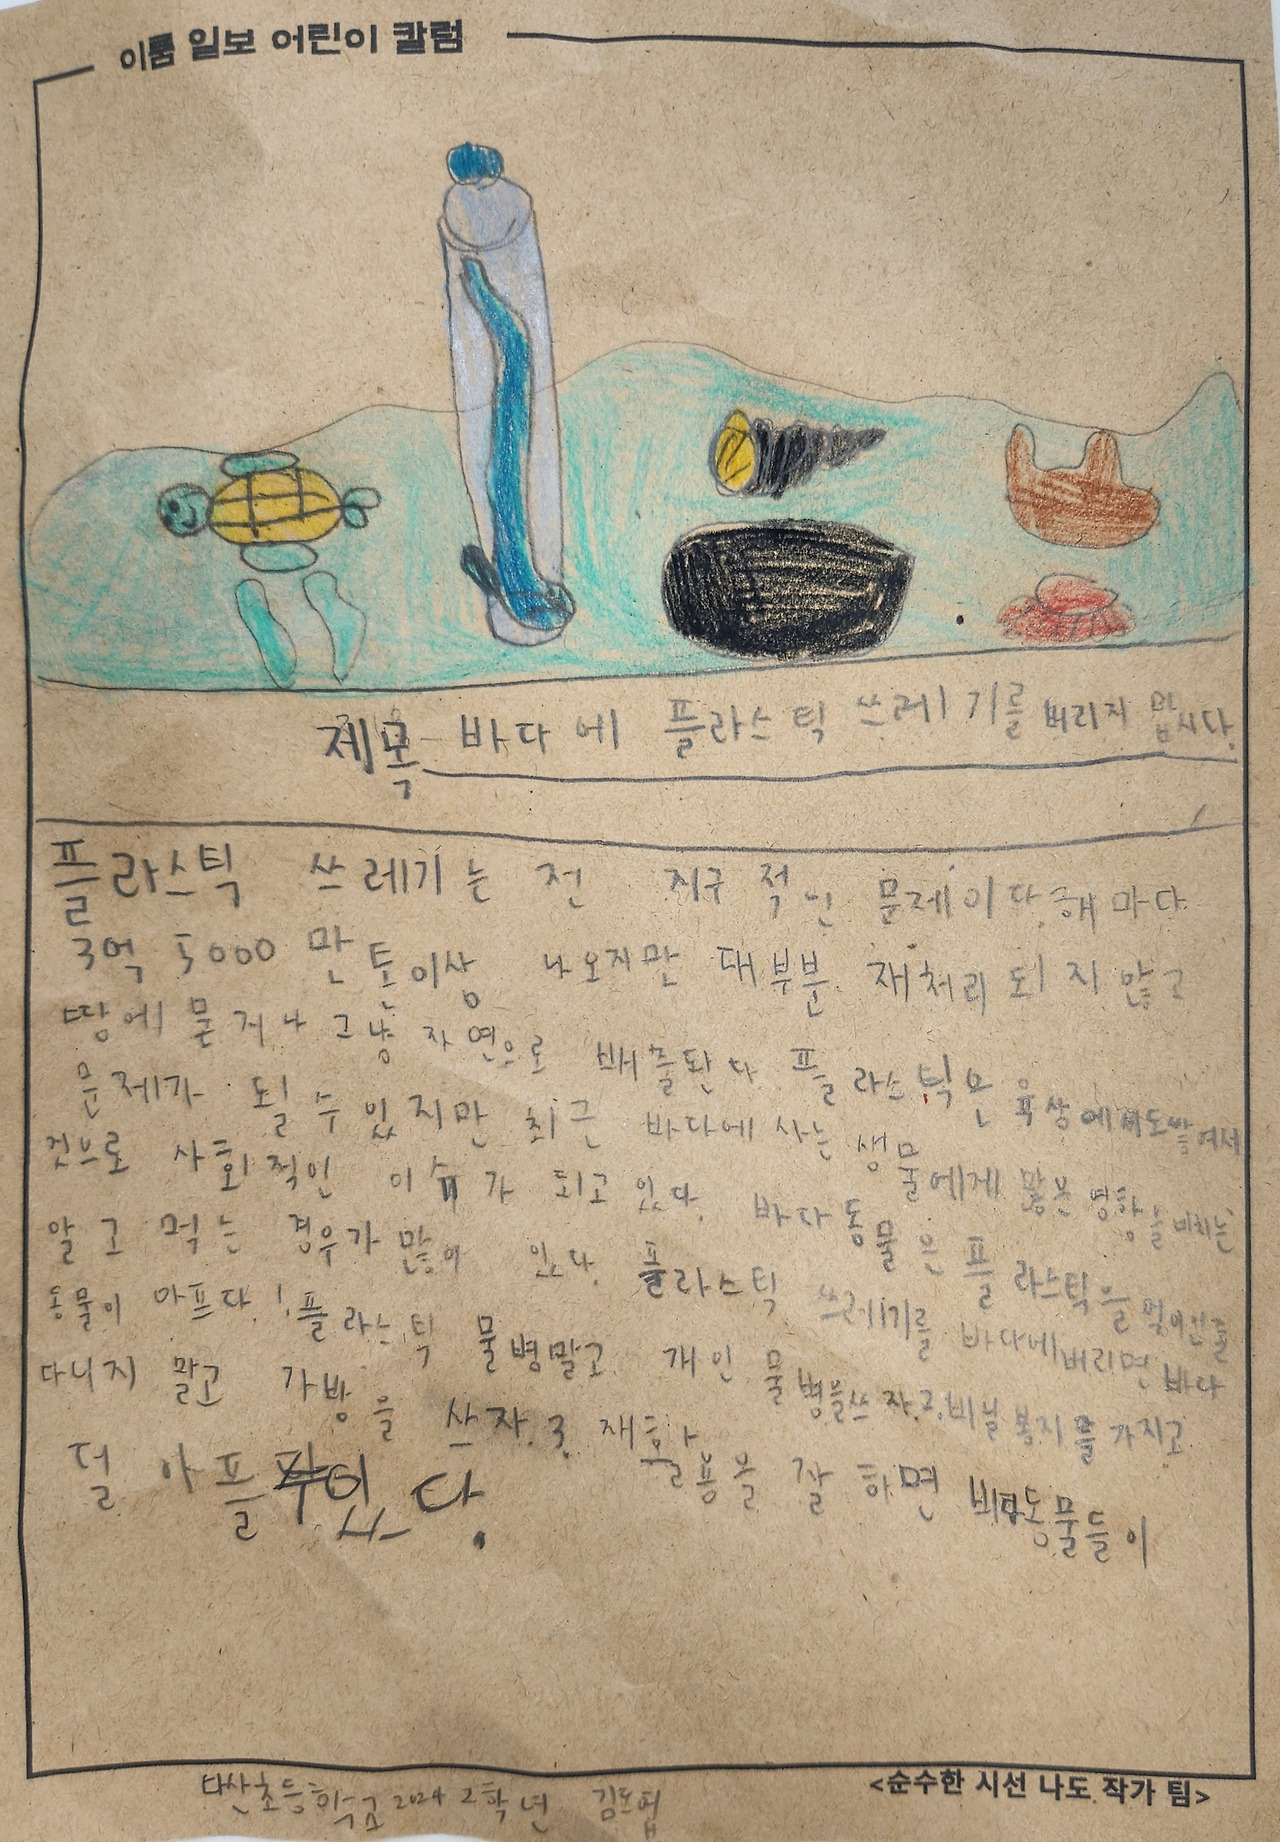 이룸 일보 어린이 칼럼
제목 바다에 플라스틱 쓰레기를 버리지 맙시다.
플라스틱 쓰레기는 전 지구적인 문제이다. 해마다
3억 5000만 톤이상 나오지만 대부분 재처리 되지 않고
땅에 묻거나 그냥 자연으로 배출된다. 플라스틱은 육상에서도
문제가 될 수 있지만 최근 바다에 사는 생물에게 많은 영향을 미치는
것으로 사회적인 이슈가 되고 있다. 바다 동물은 플라스틱을 먹이인줄
알고 먹는 경우가 많이 있다. 플라스틱 쓰레기를 바다에버리면 바다
동물이 아프다! 플라스틱 물병말고 개인 물병을쓰자. 2. 비닐 봉지를 가지고
다니지 말고 가방을 쓰자. 3. 재활용을 잘 하면 바다동물들이
덜 아플 다.
초등학교 2024 2학년
<순수한 시선 나도 작가 팀>